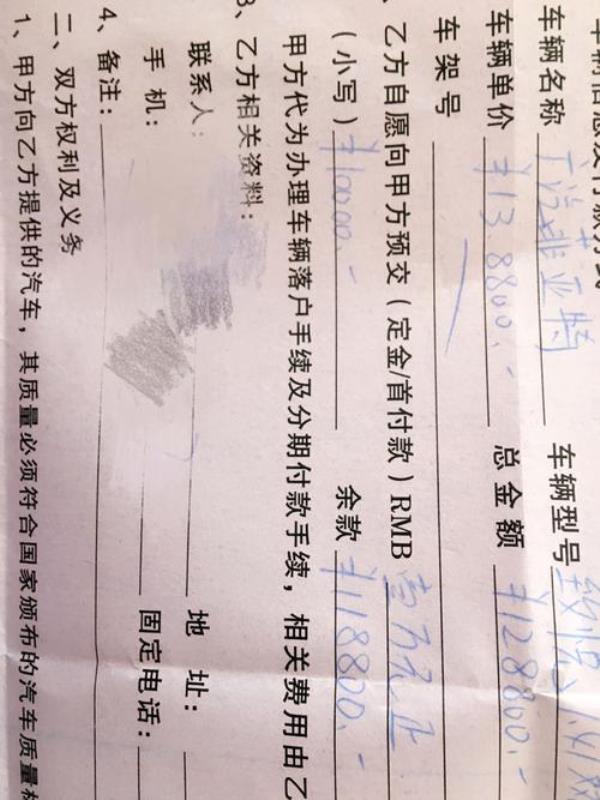 车辆信息及付款方式
车辆名称 广汽菲亚特 车辆型号 致悦
车辆单价 ¥138800.- 总金额 ¥128800.-
车架号
、乙方自愿向甲方预交（定金/首付款）RMB 壹万元正
（小写）¥10000.- 余款 ¥118800.-
甲方代为办理车辆落户手续及分期付款手续，相关费用由乙
3、乙方相关资料：
联系人： 地 址：
手 机： 固定电话：
4、备注：
二、双方权利及义务
1、甲方向乙方提供的汽车，其质量必须符合国家颁布的汽车质量标